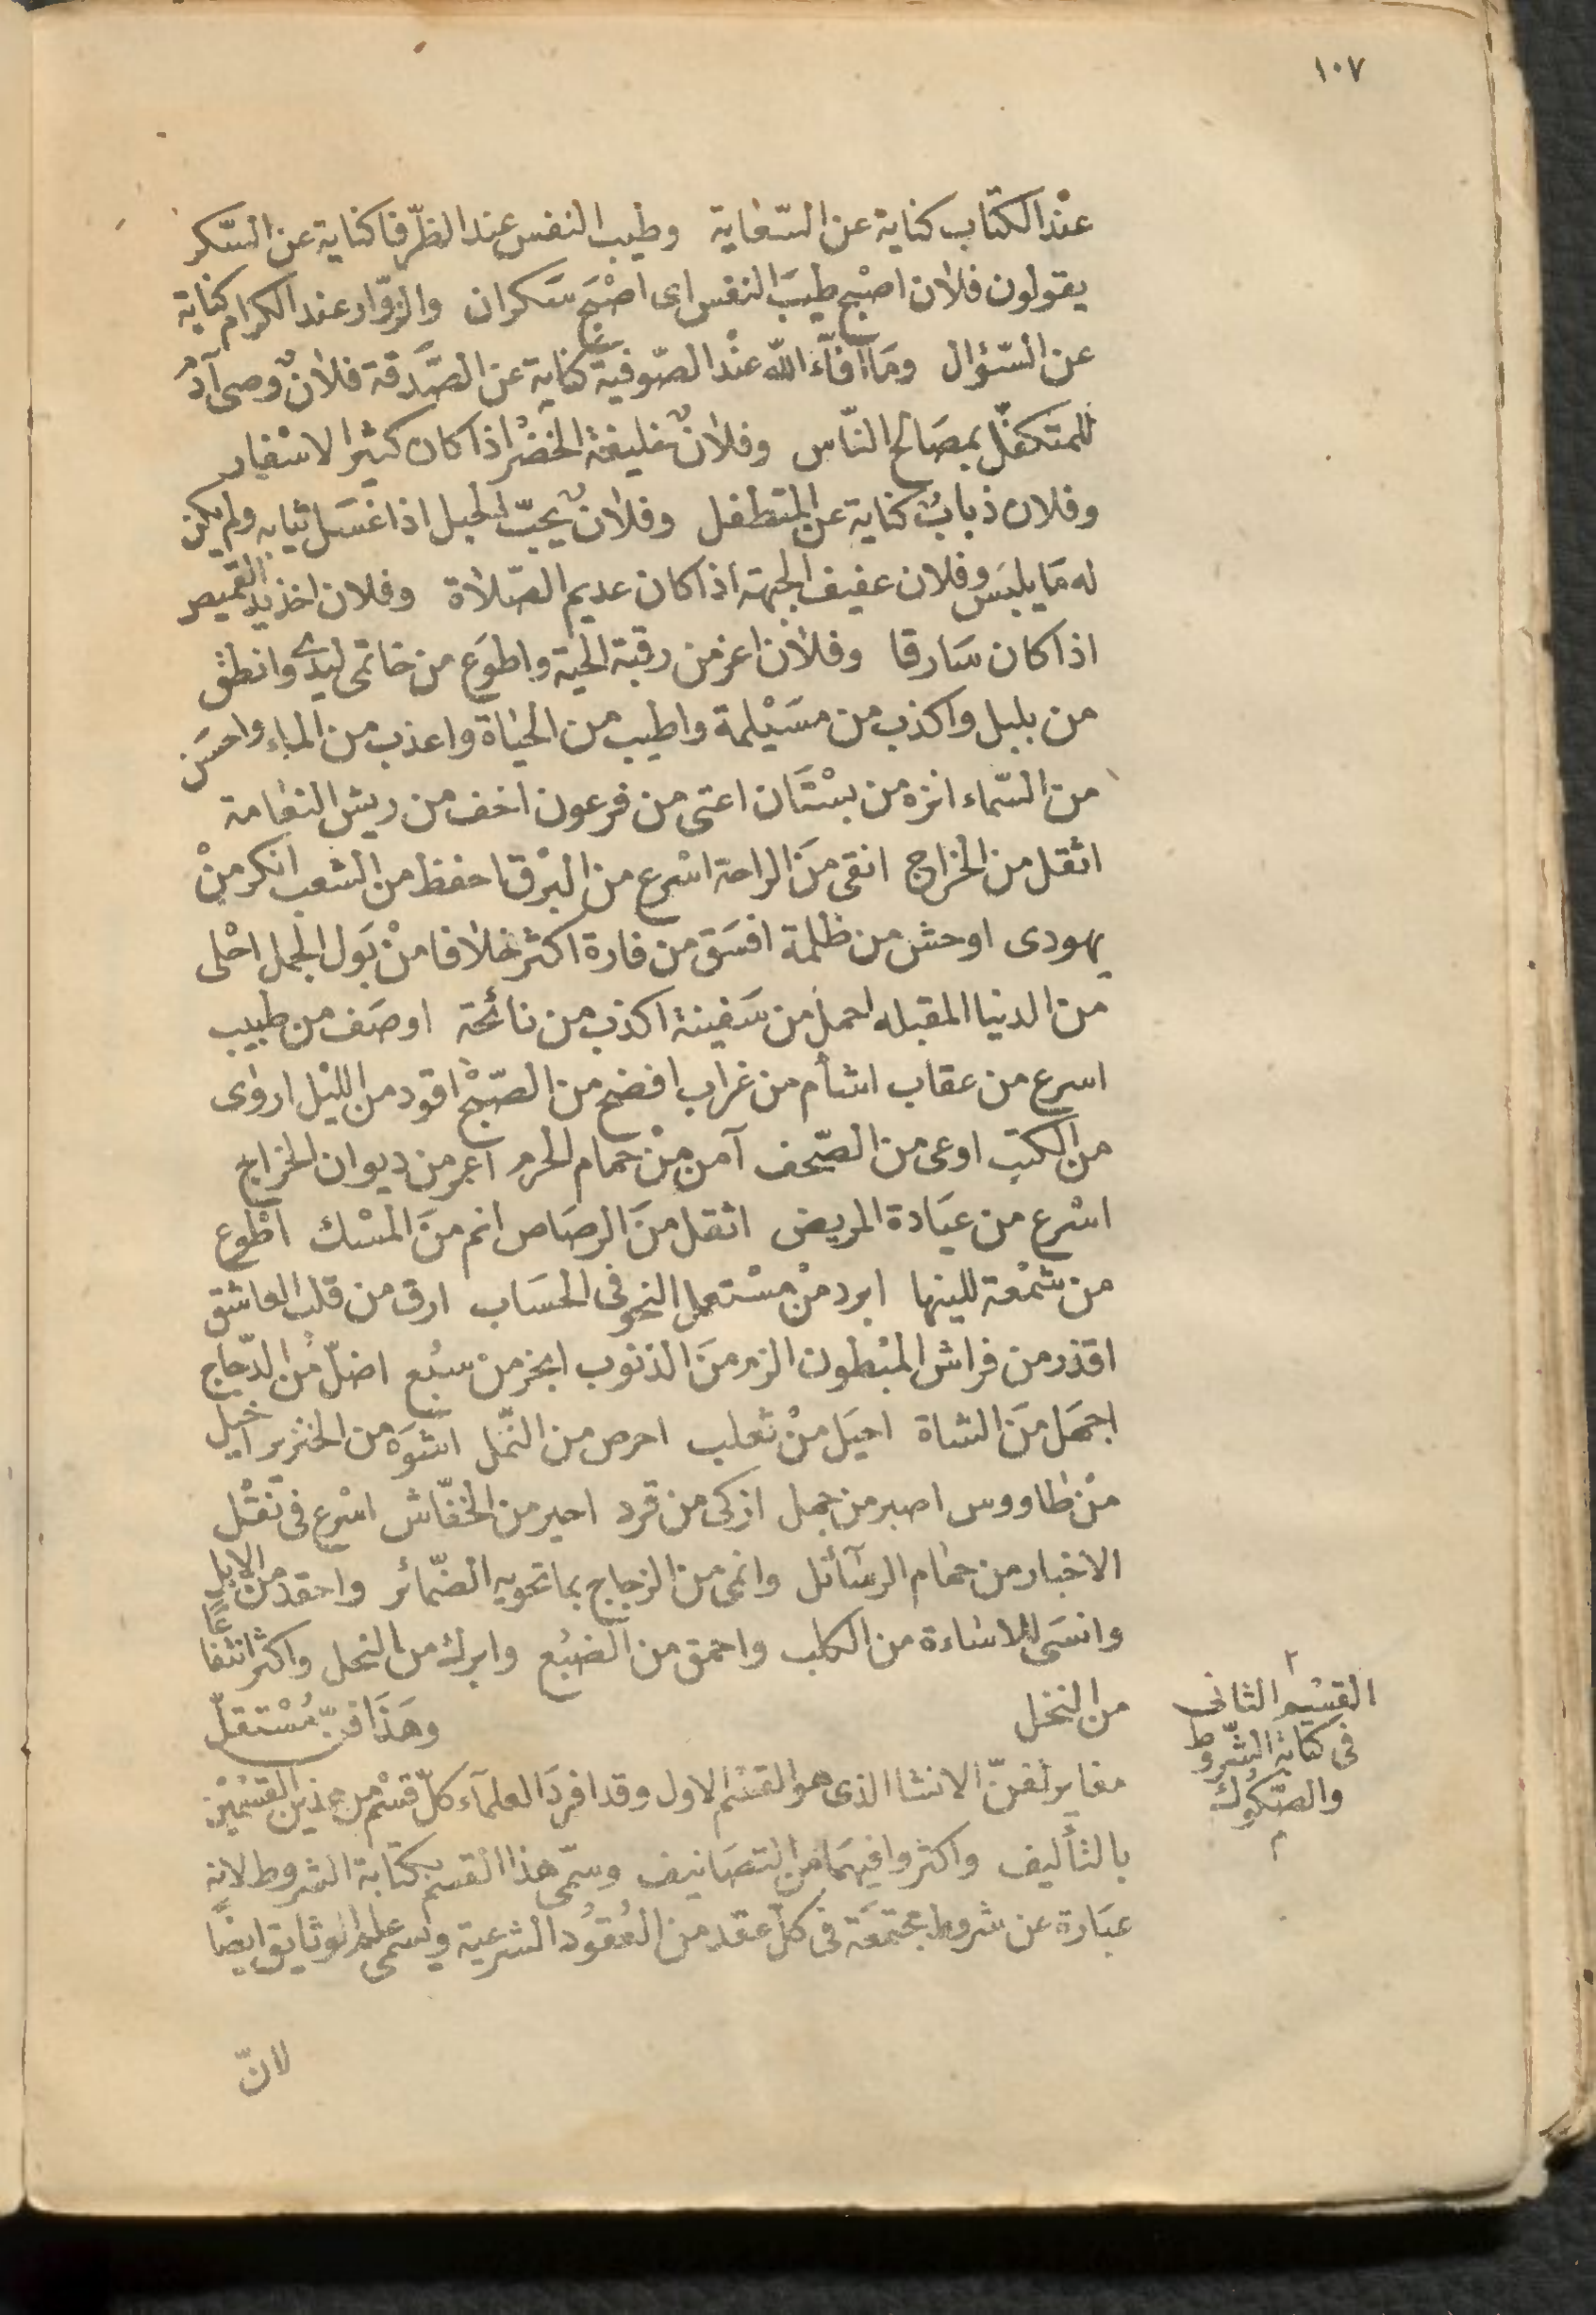 ١٠٧
عنْد الكتّاب كناية عن السّعاية وطيب النفس عند الظرّفا كناية عن السّكر
يقولون فلان اصبْح طيبَ النفس اى اصبْح سَكران والزوّار عند الكرام كناية
عن السّؤال ومَا آفآء الله عنْد الصّوفيّة كناية عن الصَّدَقة فلانٌ وصى آدم
للمتكفّل بمصَالح النّاس وفلانٌ خليفة الخضْر اذا كان كثير الاسْفار
وفلان ذبابٌ كناية عن المتطفل وفلانٌ يحبّ الحبل اذا غسَل ثيابه ولم يكن
له مَا يلبَس وفلان عفيف الجبهة اذا كان عديم الصّلاة وفلان اخذ يد القميص
اذا كان سَارقا وفلان اعز من رقبة الحية واطوَع من خاتمى ليدى وانطق
من بلبل واكذب من مسَيْلمة واطيب من الحيَاة واعذب من الماء واحسَن
من السّماء انزه من بسْتَان اعتى من فرعون اخف من ريش النعامة
اثقل من الخراج انقى مَن الراحة اسْرع من البرْق احفظ من الشعب انكر منْ
يهودى اوحش من ظلمة افسَق من فارة اكثر خلافا منْ بَول الجمل احْلى
من الدنيا المقبله احمل من سَفينة اكذب من نائحة اوصَف من طبيب
اسرع من عقاب اشأم من غراب افضح من الصّبْح اقود من الليْل اروى
من الكتب اوعى من الصّحف آمن منْ حمام الحرم اعمر من ديوان الخراج
اسْرع من عيَادة المريض اثقل منَ الرصَاص انم منَ المسْك اطْوع
من شمْعة للينها ابرد منْ مسْتعمل النحو فى الحسَاب ارق من قلب العاشق
اقذر من فراش المبْطون الزم منَ الذنوب ابخر من سبُع اضلّ من الدّجاج
اجهَل منَ الشاة احيَل منْ ثعلب احرص من النّمل اشوَه من الخنزير اخيل
منْ طاووس اصبر من جمل ازكى من قرد احير من الخفّاش اسْرع فى نقْل
الاخبار من حمام الرسَآئل وانمى من الزجاج بما تحويه الضّمائر واحقد من الابل
وانسَى للاسَاءة من الكلب واحمق من الضبُع وابرك من النحل واكثر انتفاعًا
من النخل وهَذَا فنّ مُسْتقلّ
القسْيم الثانى
فى كتابة الشّروط
والصّكوك
مغاير لفنّ الانشا الذى هو القسْم الاول وقد افردَ العلمآء كلّ قسْم من هذين القسْمَيْن
بالتأليف واكثروا فيهمَا من التصَانيف وسمّى هذا القسم بكتَابة الشروط لانه
عبَارة عن شروط مجتمعَة فى كلّ عقد من العُقوُد الشرعية ويسمى علم الوثايق ايضًا
لانّ